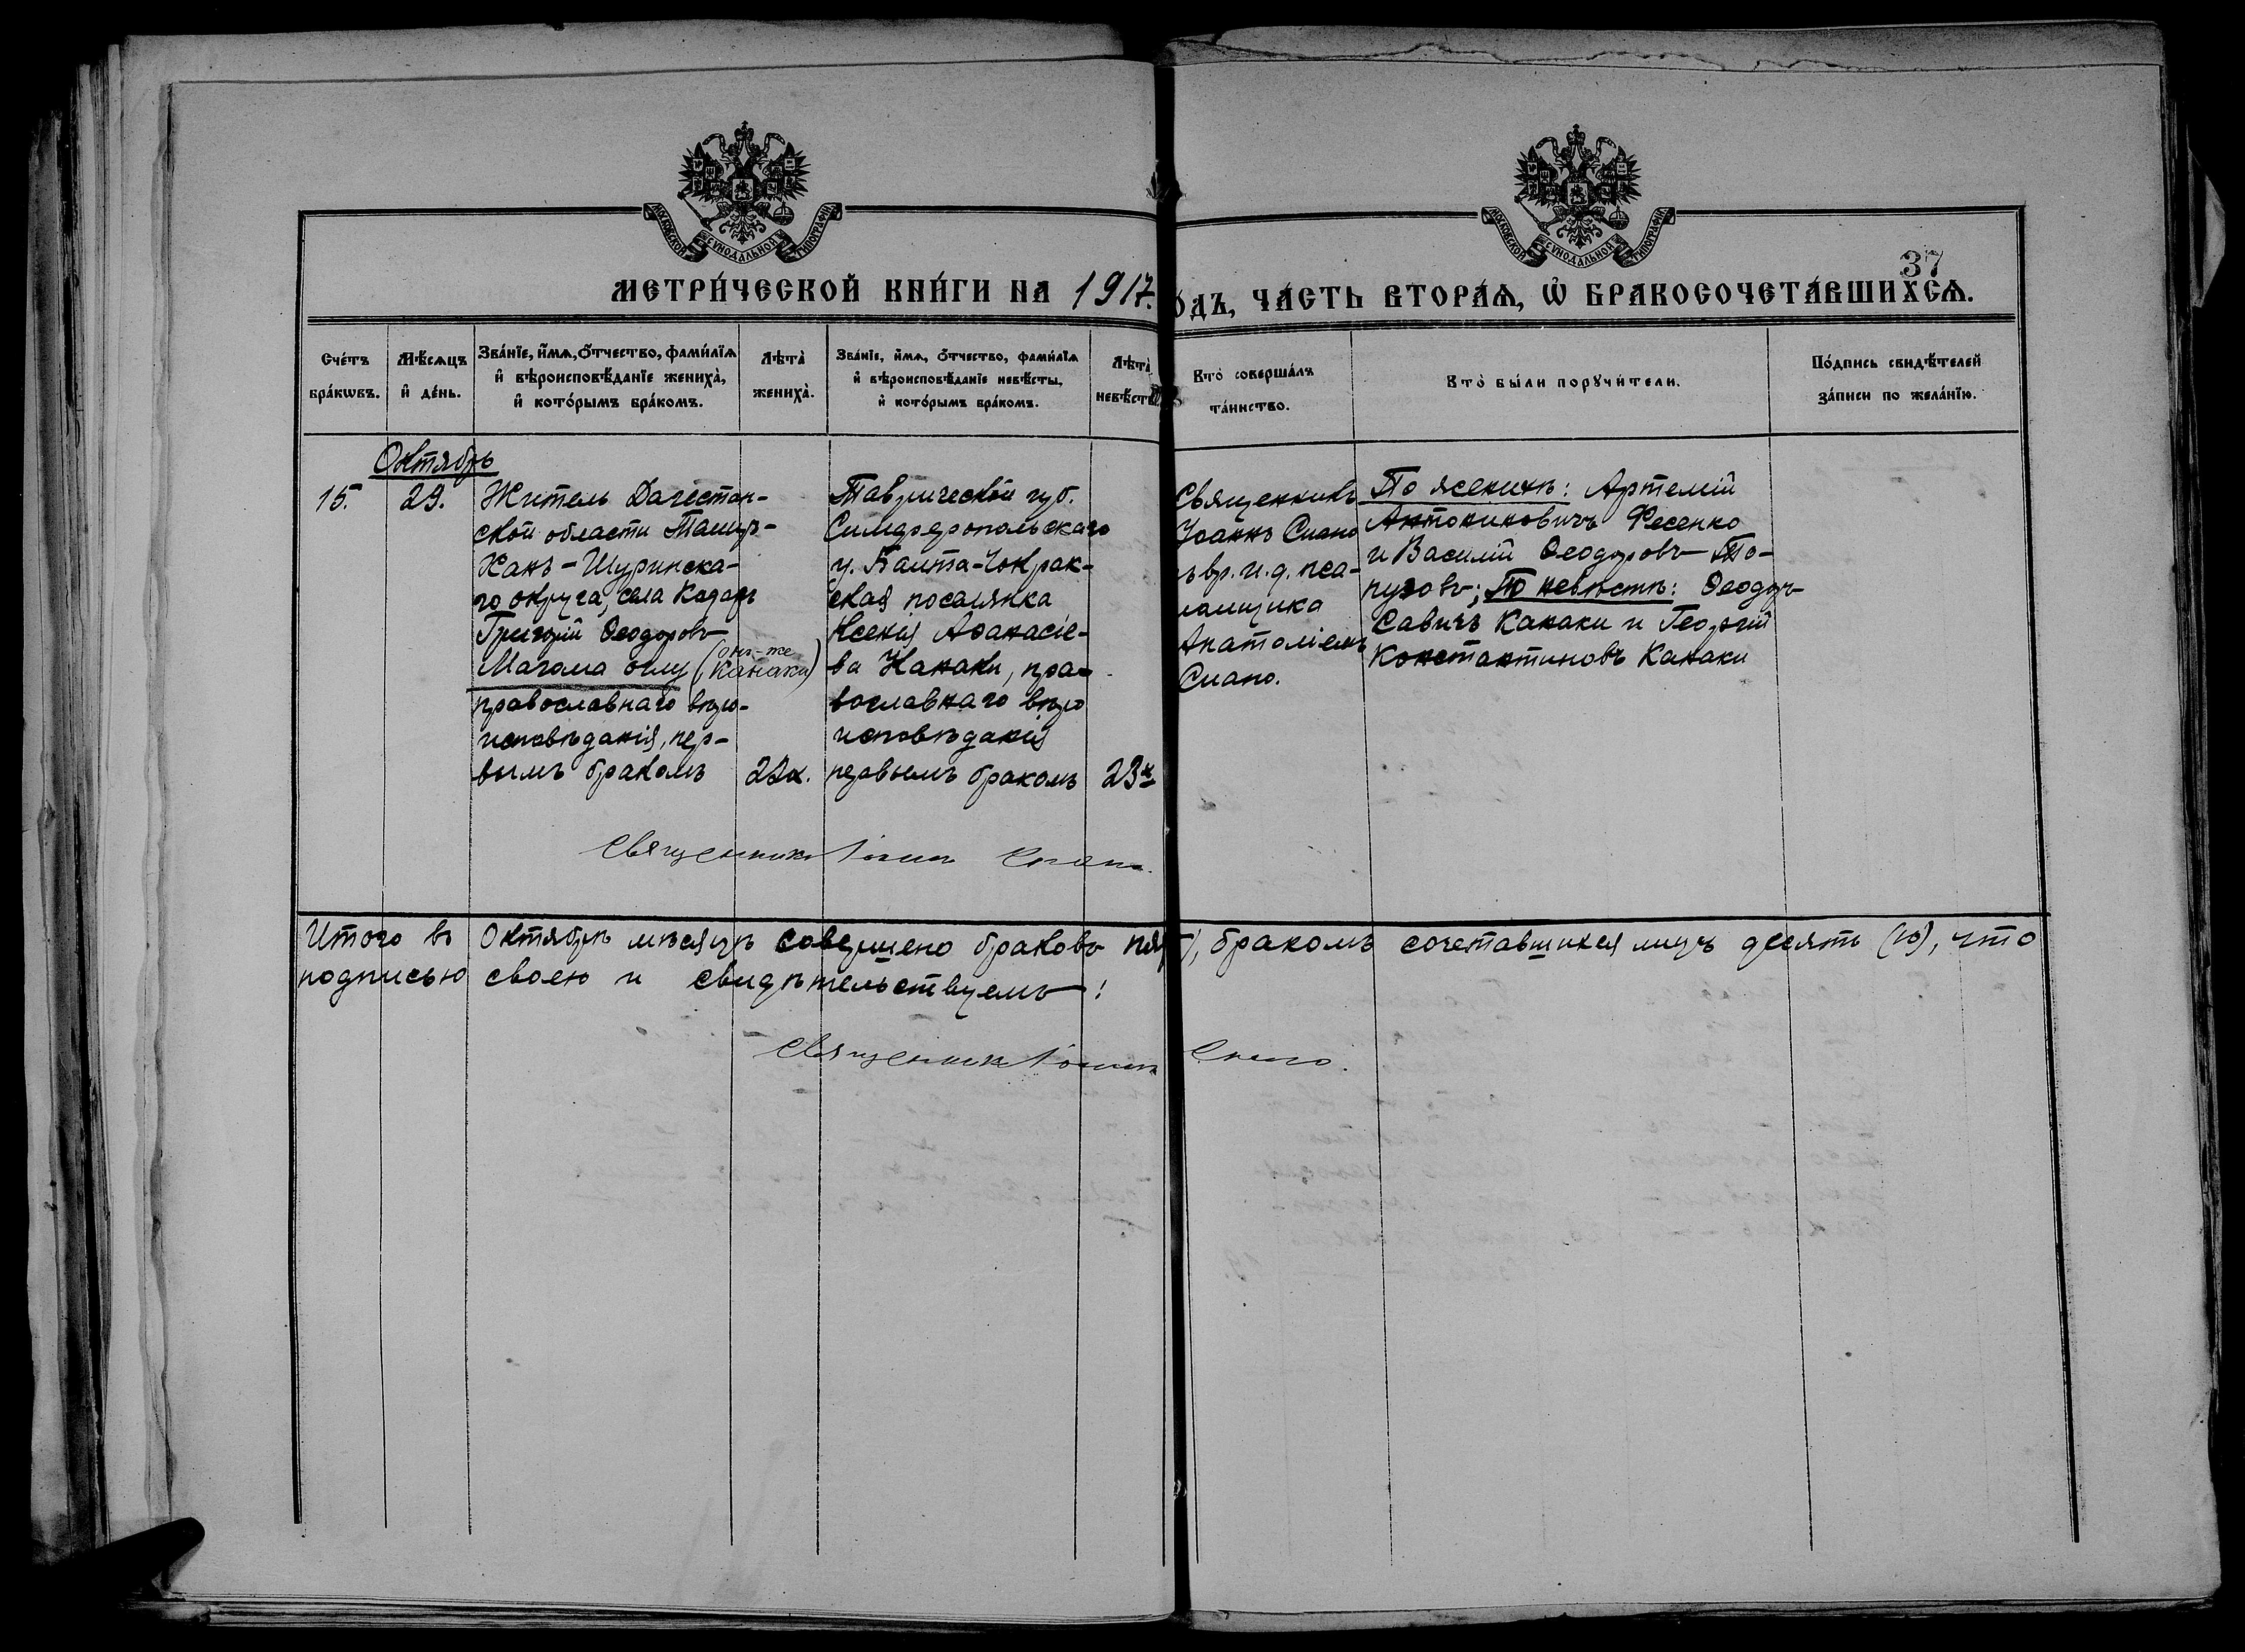 МОСКОВСКОЙ СѴНОДАЛЬНОЙ ТИПОГРАФІИ
МОСКОВСКОЙ СѴНОДАЛЬНОЙ ТИПОГРАФІИ
37
МЕТРИ́ЧЕСКОЙ КНИ́ГИ НА 1917.
О́ДЪ, ЧА́СТЬ ВТОРА́Ѧ, Ѡ҆ БРАКОСОЧЕТА́ВШИХСѦ.
Сче́тъ
бра́кѡвъ.
Мѣ́сѧцъ
и҆ де́нь.
Зва́нїе, и҆́мѧ, ѻ҆́тчество, фами́лїѧ
и҆ вѣроисповѣ́данїе жениха̀,
и҆ кото́рымъ бра́комъ.
Лѣта̀
жениха̀.
Зва́нїе, и҆́мѧ, ѻ҆́тчество, фами́лїѧ
и҆ вѣроисповѣ́данїе невѣ́сты,
и҆ кото́рымъ бра́комъ.
Лѣта̀
невѣ́сты
Кто̀ соверша́лъ
та́инство.
Кто̀ бы́ли порꙋчи́тели.
По́дпись свидѣ́телей
за́писи по жела́нїю.
Октябрь
15.
29.
Житель Дагестан-
ской области Темир-
Ханъ-Шуринска-
го округа, села Кадаръ
Григорій Ѳеодоровъ
Магома оглу (онъ-же Канаки)
православнаго вѣро-
исповѣданія, пер-
вымъ бракомъ
22х.
Таврической губ.
Симферопольскаго
у. Баита-Чокрак-
ская поселянка
Ксенія Аѳанасіе-
ва Канаки, пра-
вославнаго вѣро
исповѣданія
первымъ бракомъ
23х
Священникъ
Іоаннъ Сиано
ъ вр. и. д. пса-
ломщика
Анатоліемъ
Сиано.
По женихѣ: Артемій
Антониновичъ Фесенко
и Василій Ѳеодоровъ То-
пузовъ; По невѣстѣ: Ѳеодоръ
Савичъ Канаки и Георгій
Константиновъ Канаки
Священникъ Іоаннъ Сиано.
Итого въ Октябрѣ мѣсяцѣ совершено браковъ пят), бракомъ сочетавшихся лицъ десять (10), что
подписью своею и свидѣтельствуемъ:
Священникъ Іоаннъ Сиано.